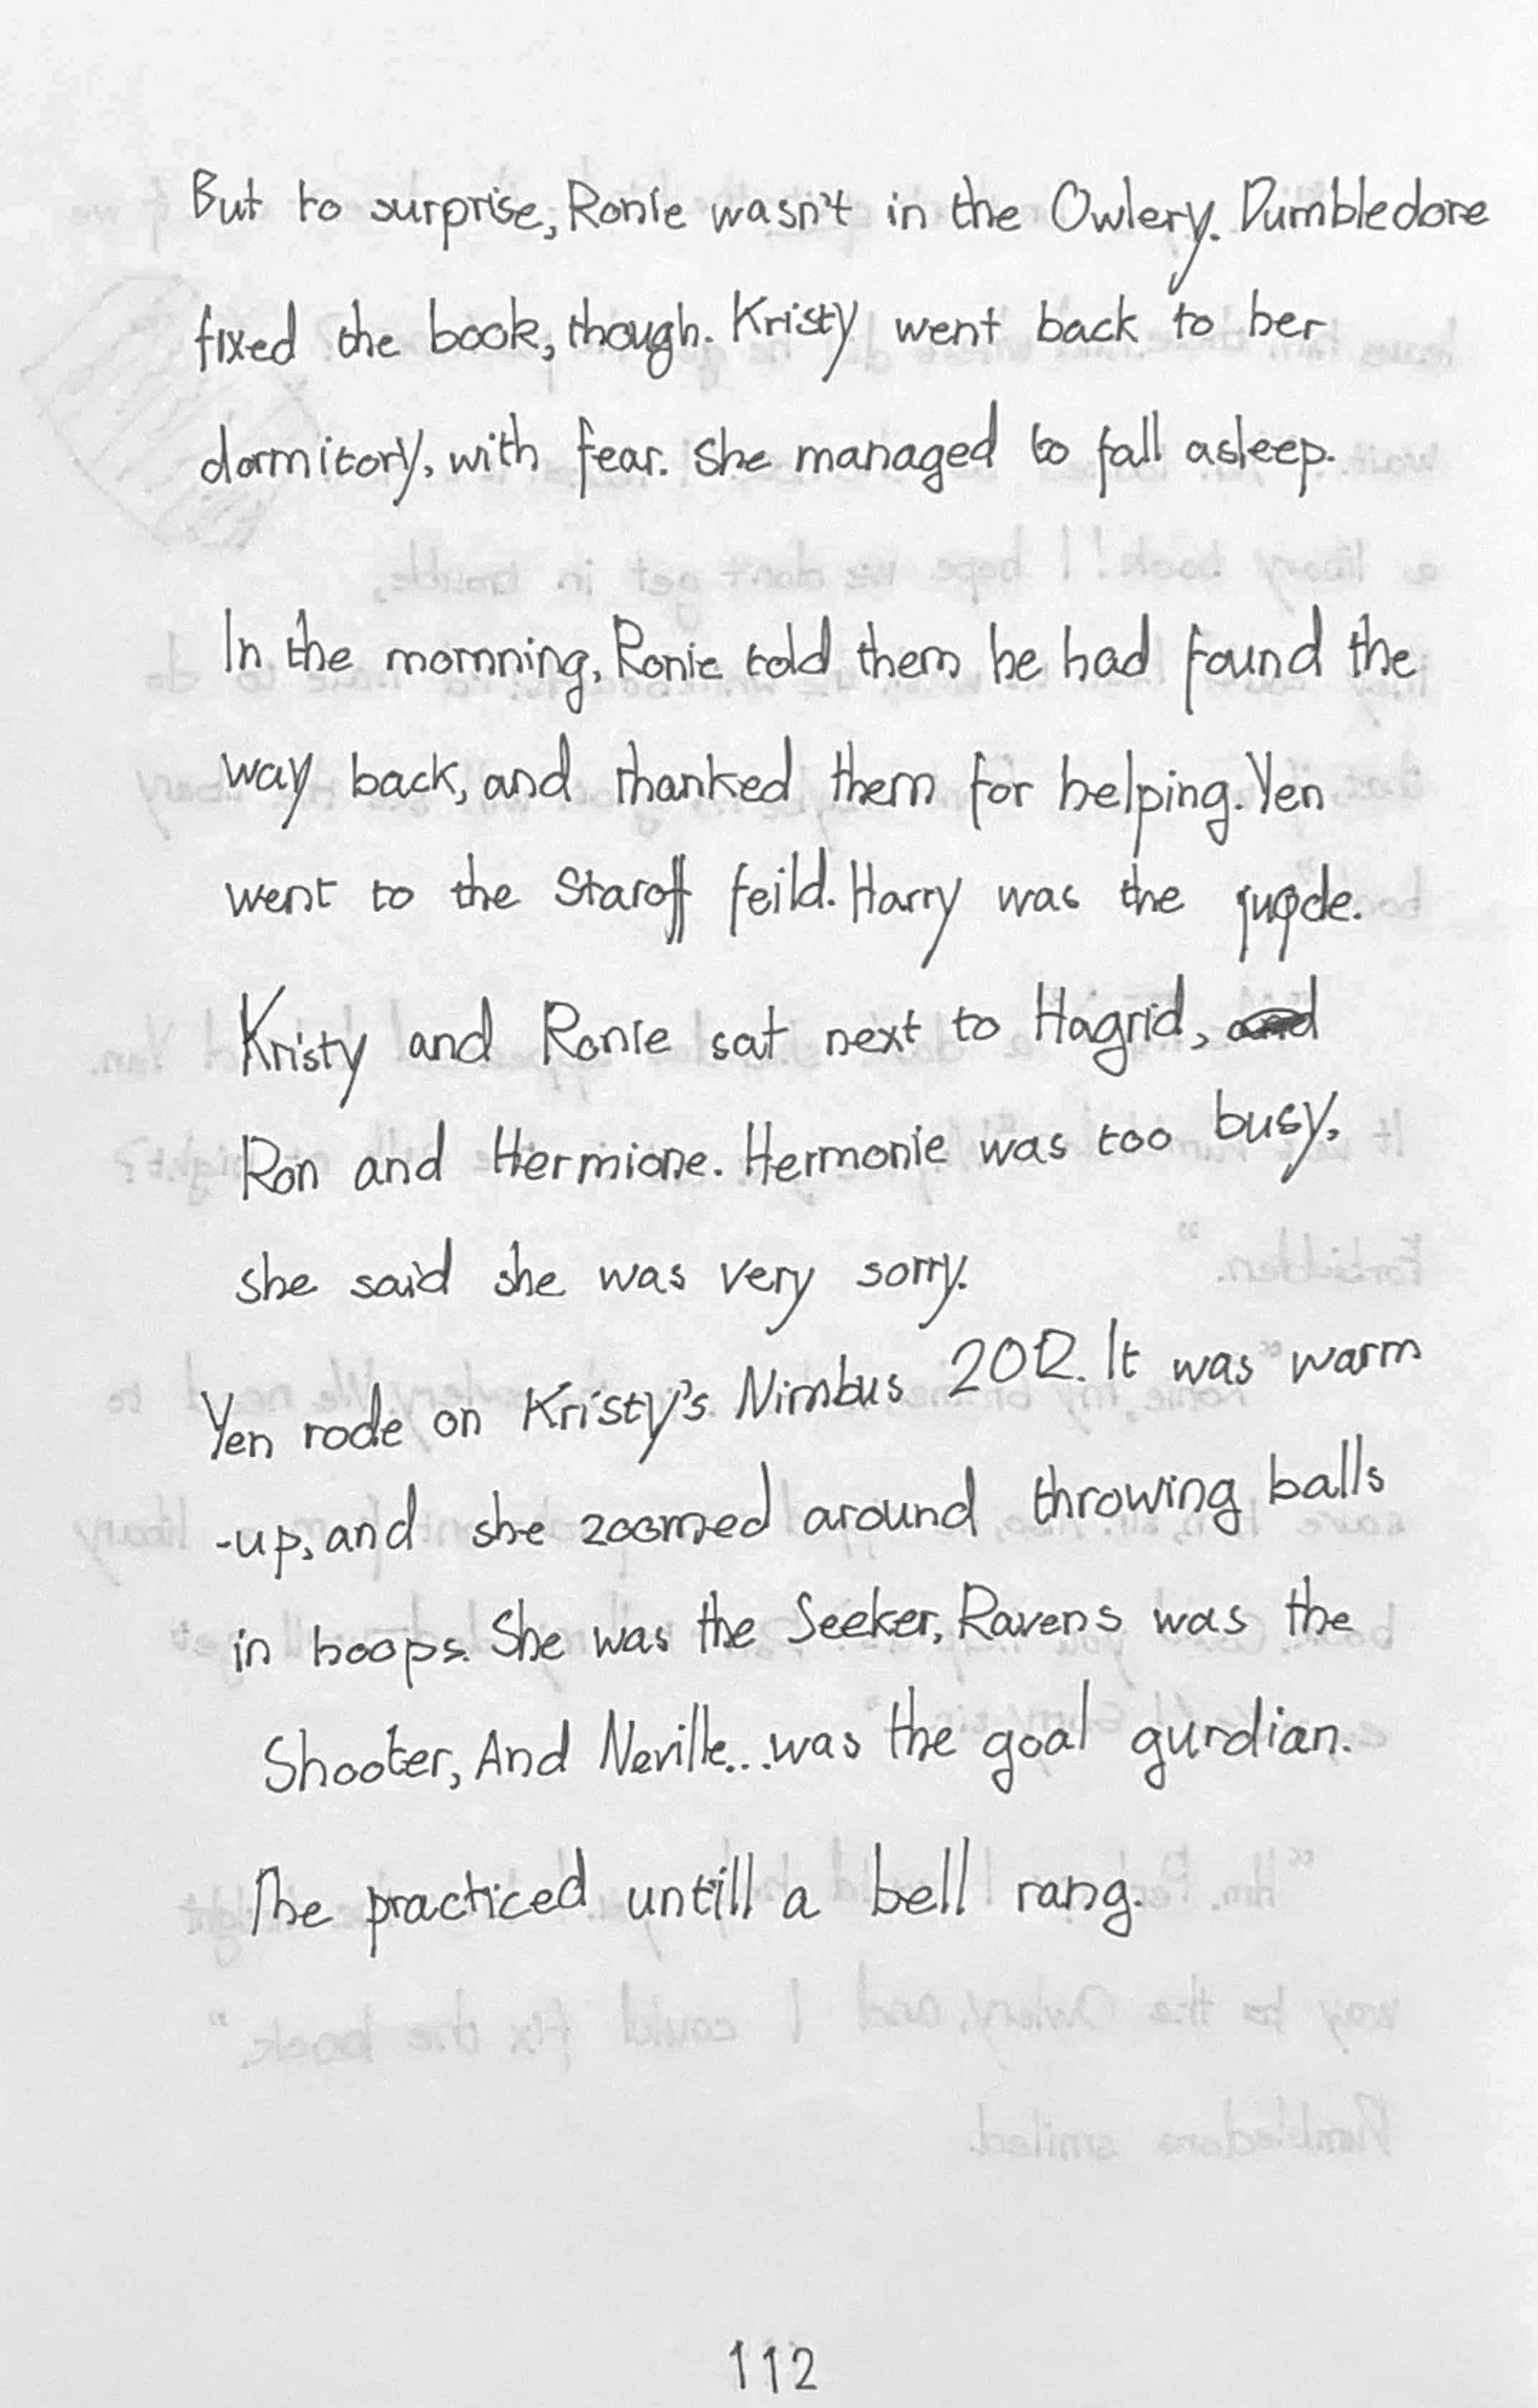 But to surprise, Ronie wasn't in the Owlery. Dumbledore
fixed the book, though. Kristy went back to her
dormitory, with fear. She managed to fall asleep.
In the mornning, Ronie told them he had found the
way back, and thanked them for helping. Yen
went to the Staroff feild. Harry was the jugde.
Kristy and Ronie sat next to Hagrid, and
Ron and Hermione. Hermonie was too busy,
she said she was very sorry.
Yen rode on Kristy's Nimbus 2012. It was warm
-up, and she zoomed around throwing balls
in hoops. She was the Seeker, Ravens was the
Shooter, And Neville... was the goal gurdian.
The practiced untill a bell rang.
112